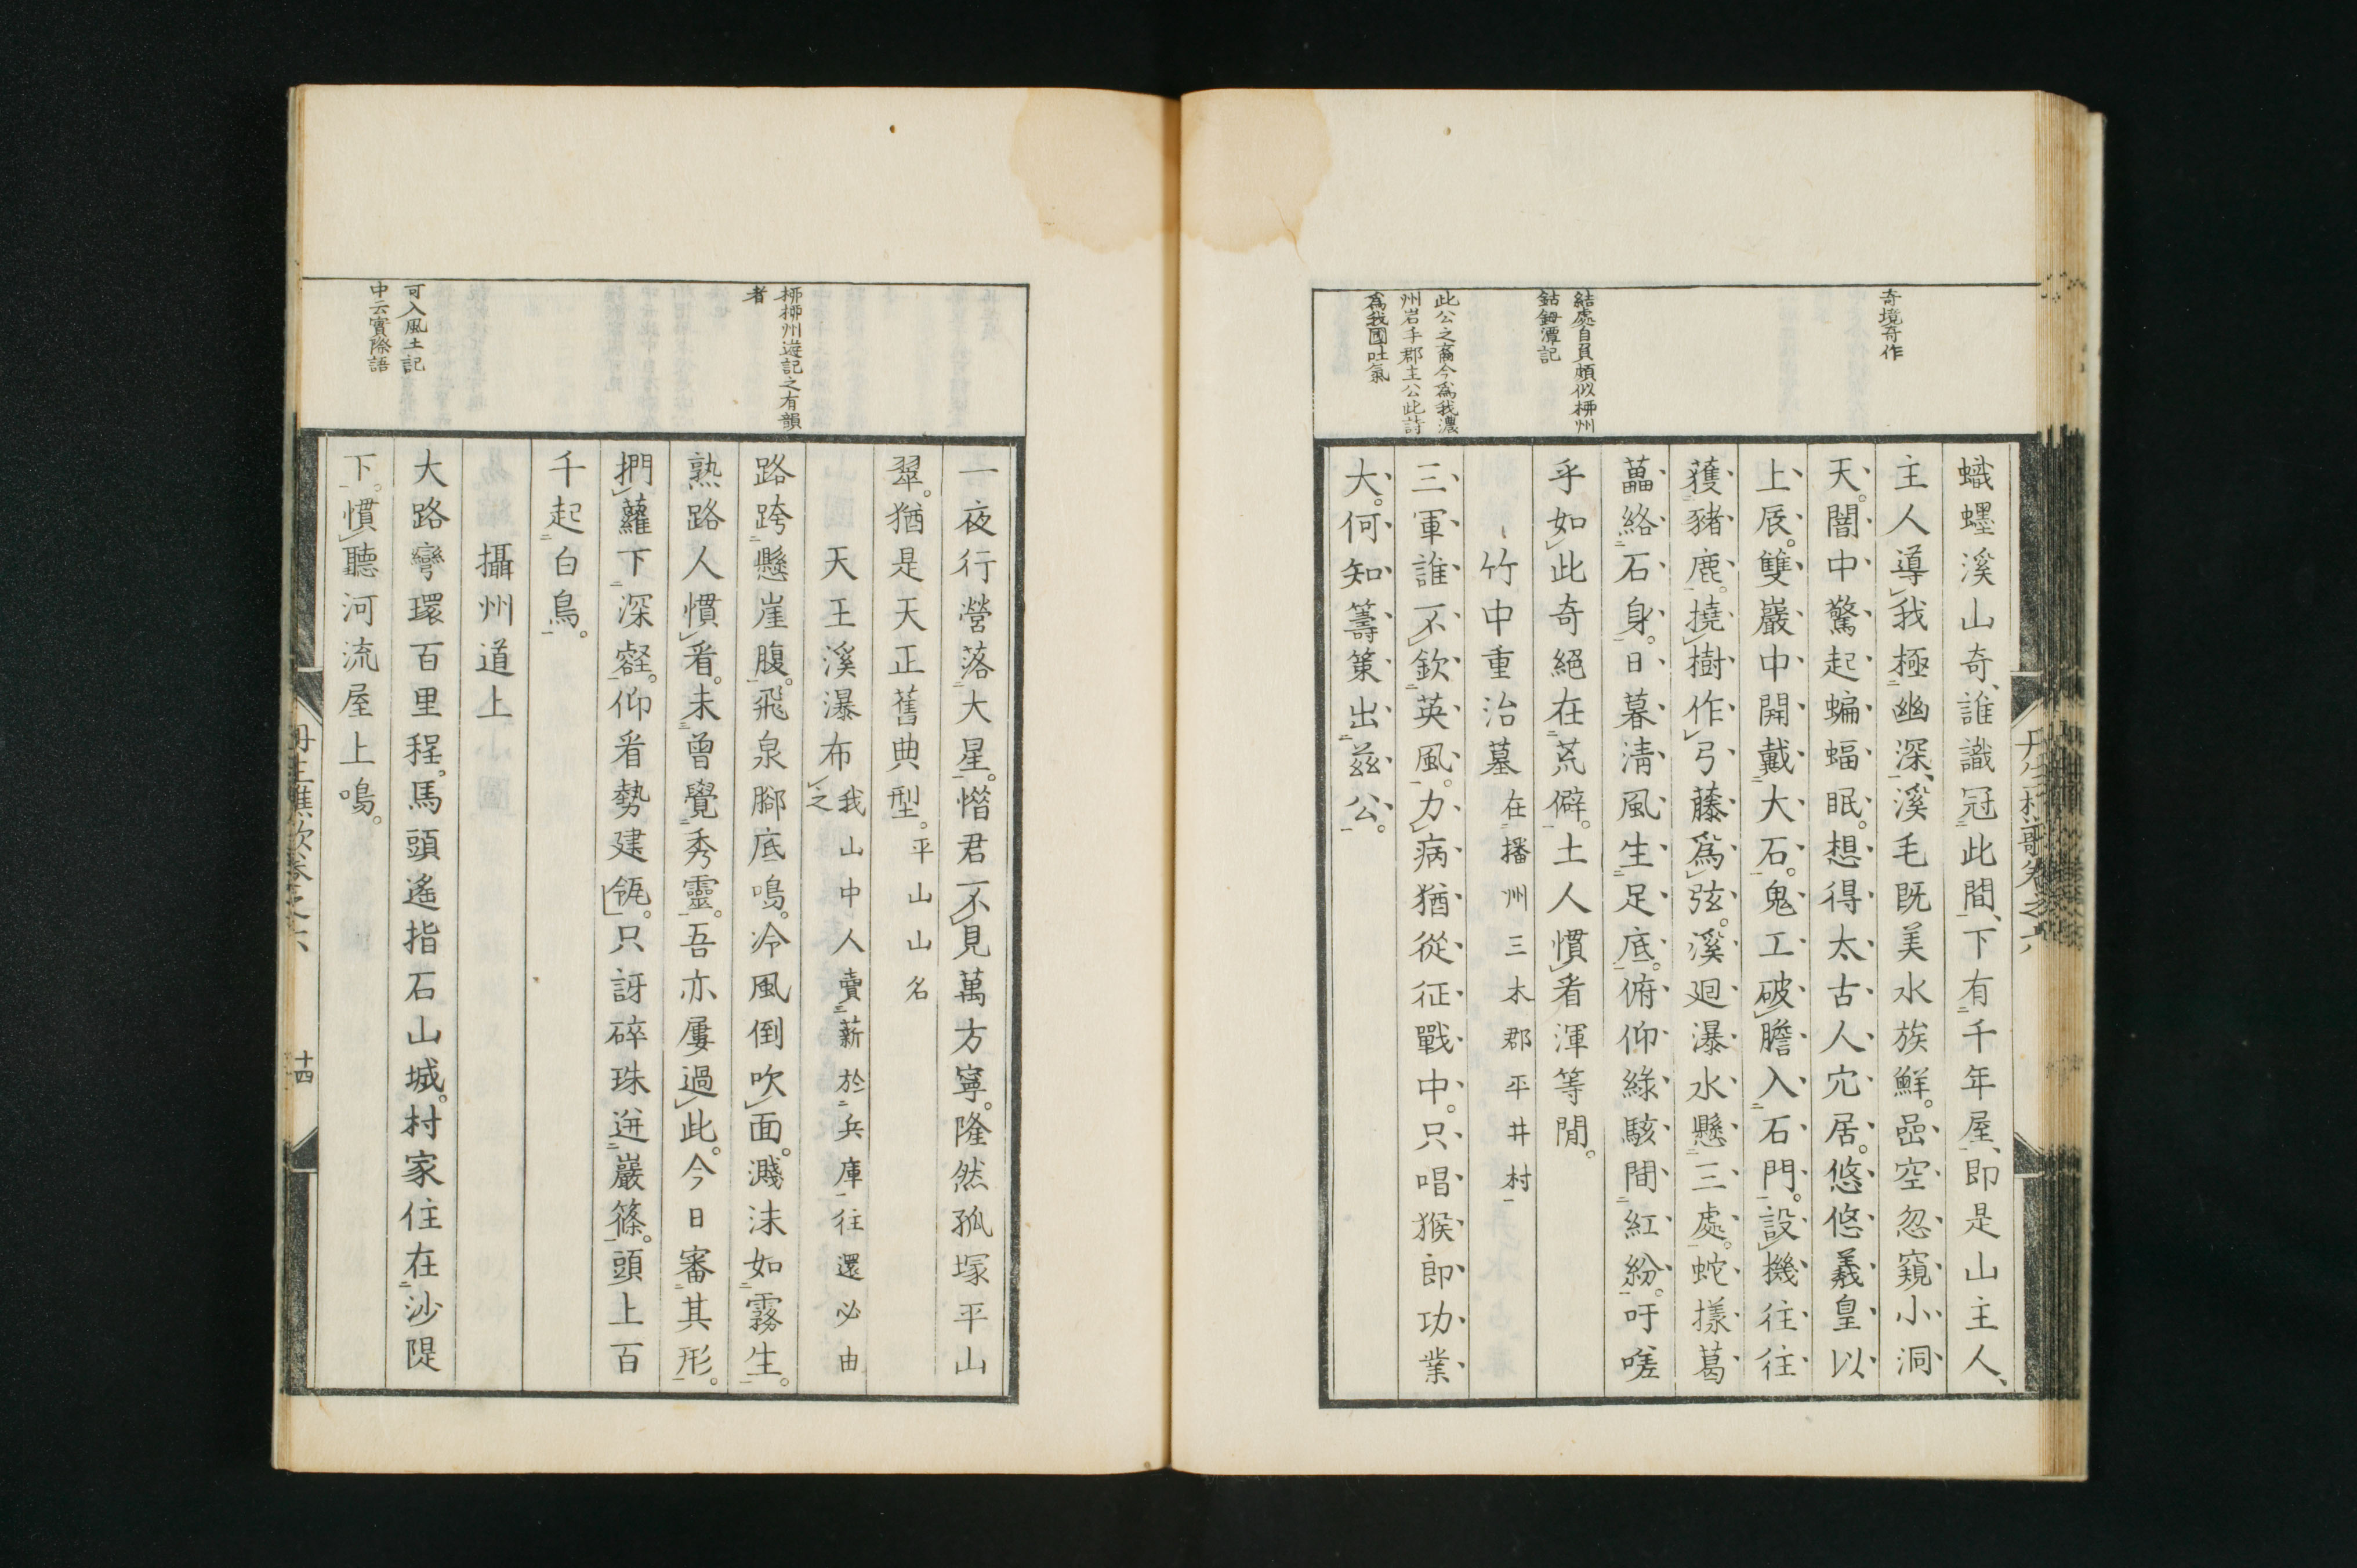 奇境奇作
結處自負頗似柳州
鈷鉧潭記
此公之裔今為我濃
州岩手郡主公此詩
為我國吐氣
蟙䘃溪山奇、誰識冠此間、下有千年屋、即是山主人、
主人導我極幽深、溪毛既美水族鮮。嵒空忽窺小洞
天。闇中驚起蝙蝠眠。想得太古人穴居。悠悠羲皇以
上辰。雙巖中開戴大石。鬼工破膽入石門。設機往往
獲豬鹿。撓樹作弓藤為弦。溪廻瀑水懸三處。蛇樣葛
藟絡石身。日暮清風生足底。俯仰綠駭間紅紛。吁嗟
乎如此奇絕在荒僻。土人慣看渾等閒。
竹中重治墓 在播州三木郡平井村
三軍誰不欽英風。力病猶從征戰中。只唱猴郎功業
大。何知籌策出茲公。
柳柳州遊記之有韻
者
可入風土記
中云實際語
一夜行營落大星。憯君不見萬方寧。隆然孤塚平山
翠。猶是天正舊典型。平山山名
天王溪瀑布 我山中人賣薪於兵庫往還必由之
路跨懸崖腹。飛泉腳底鳴。冷風倒吹面。濺沫如霧生。
熟路人慣看。未曾覺秀靈。吾亦屢過此。今日審其形。
捫蘿下深壑。仰看勢建瓴。只訝碎珠迸巖篠。頭上百
千起白鳥。
攝州道上
大路彎環百里程。馬頭遙指石山城。村家住在沙隄
下。慣聽河流屋上鳴。
丹生樵歌卷之六
十四